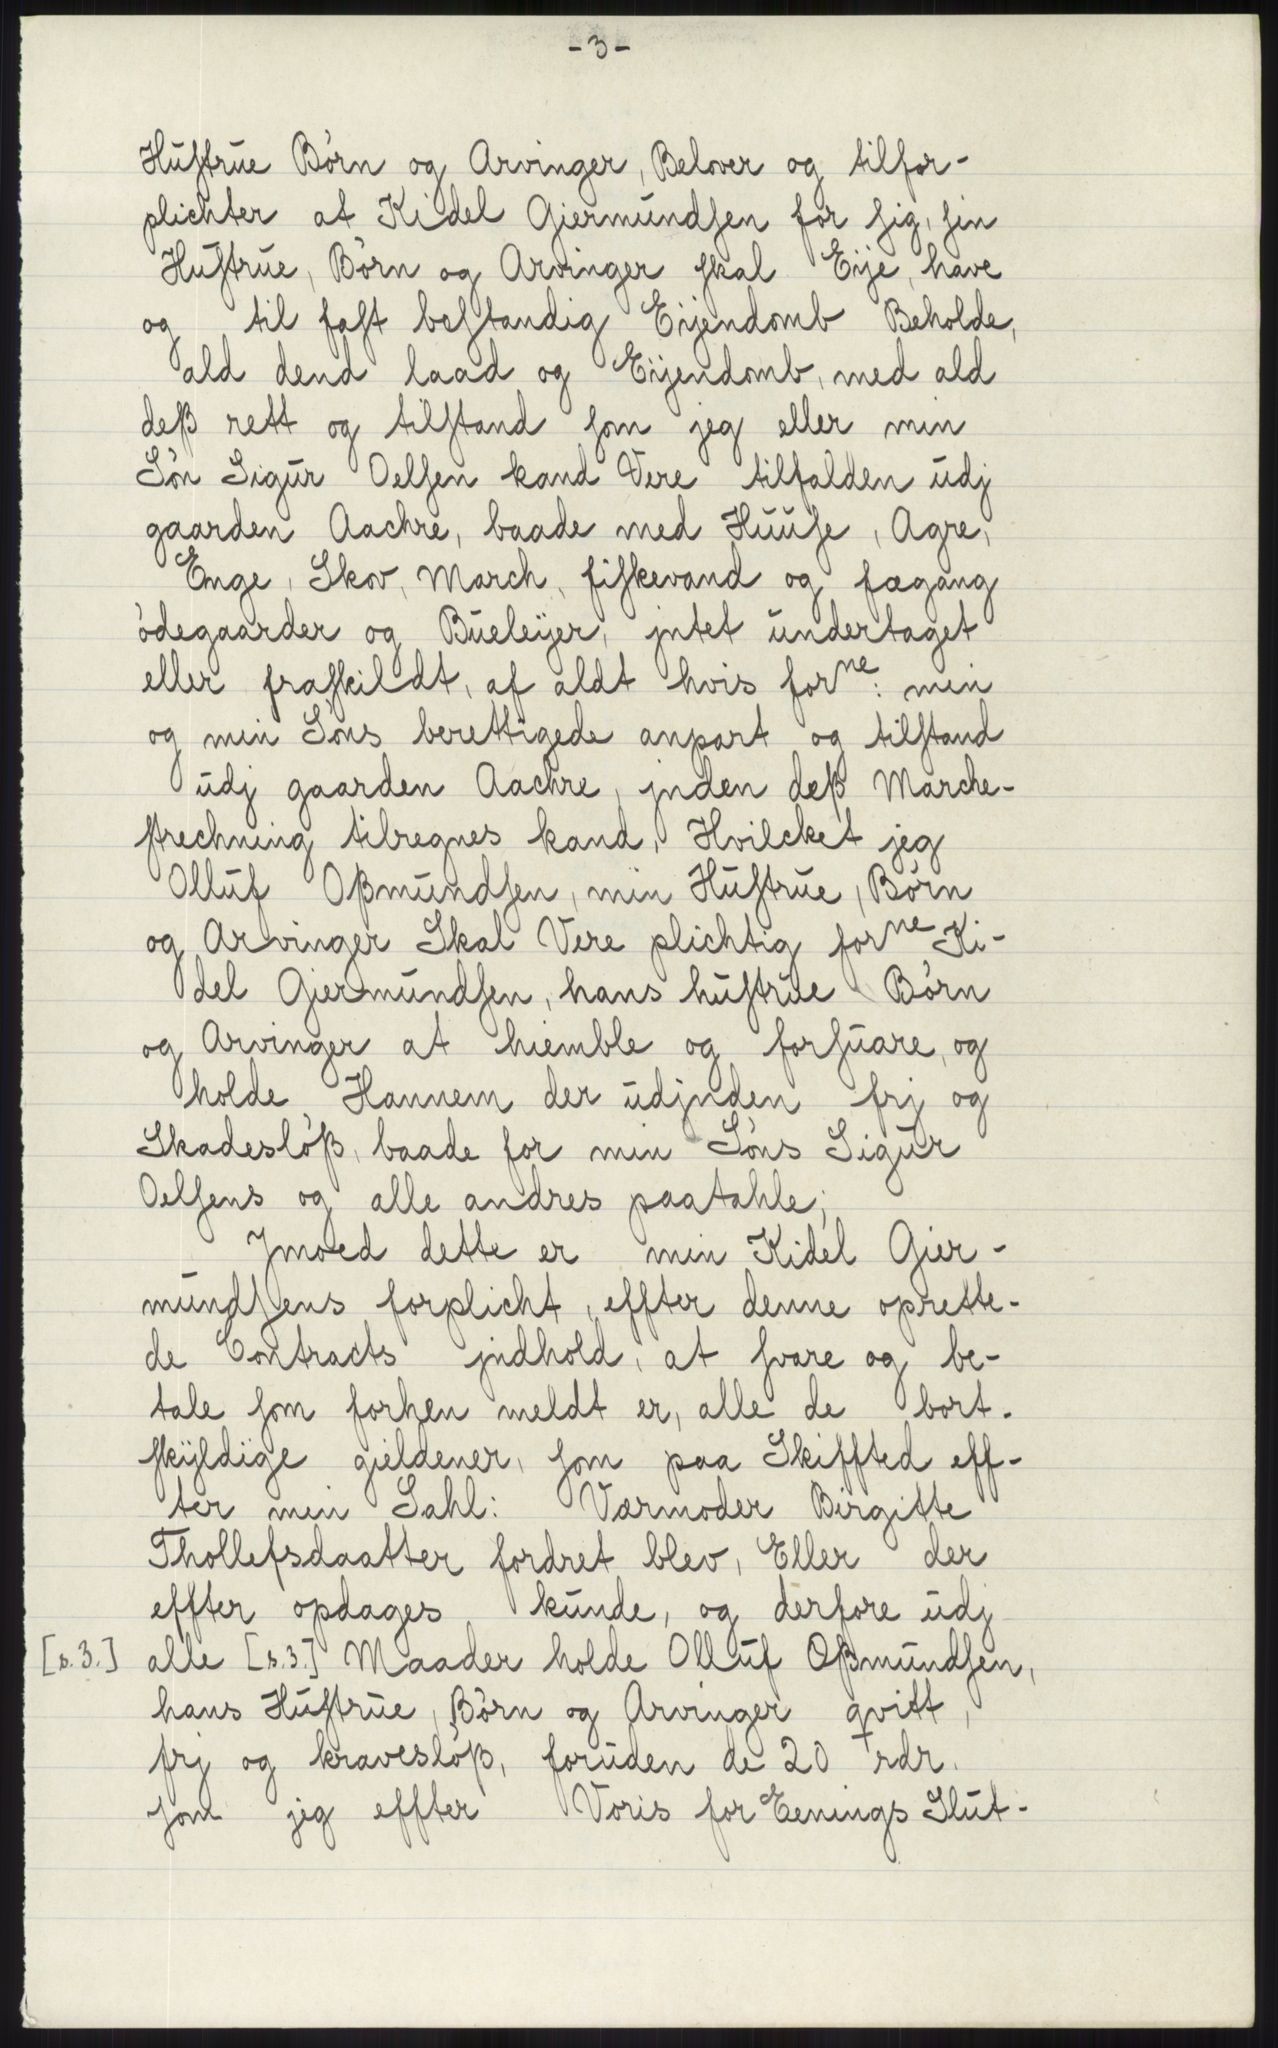 - 3 -
Hustrue Børn og Arvinger, Belover og tilfor-
plichter at Kidel Giermundsen for sig, sin
Hustrue, Børn og Arvinger skal Eije, have
og til fast bestandig Eijendomb Beholde,
ald dend laad og Eijendomb, med ald
deß rett og tilstand som jeg eller min
Søn Sigur Oelsen kand Vere tilfalden udj
gaarden Aachre, baade med Huuse, Agre,
Enge, Skov, March, fiskevand og fægang
ødegaarder og Bueleÿer, jntet undertaget
eller fraskildt, af aldt hvis forne: min
og min Søns berettigede anpart og tilstand
udj gaarden Aachre, jnden deß Marche-
strechning tilregnes kand, Hvilcket jeg
Olluf Oßmundsen, min Hustrue, Børn
og Arvinger Skal Vere plichtig forne Ki-
del Giermundsen, hans hustrue Børn
og Arvinger at hiemble og forsuare, og
holde Hannem der udjnden frj og
Skadesløß, baade for min Søns Sigur
Oelsens og alle andres paatahle;
Jmoed dette er min Kidel Gier-
mundsens forplicht, effter denne oprette-
de Contracts jndhold, at svare og be-
tale som forhen meldt er, alle de bort-
skÿldige gieldener, som paa Skiffted eff-
ter min Sahl: Værmoder Birgitte
Thollefsdaatter fordret blev, Eller der
effter opdages kunde, og derfore udj
[s.3.] alle [s.3.] Maader holde Olluf Oßmundsen,
hans Hustrue, Børn og Arvinger qvitt,
frj og kravesløß, foruden de 20 rdr.
som jeg effter Voris for Eenings Slut-